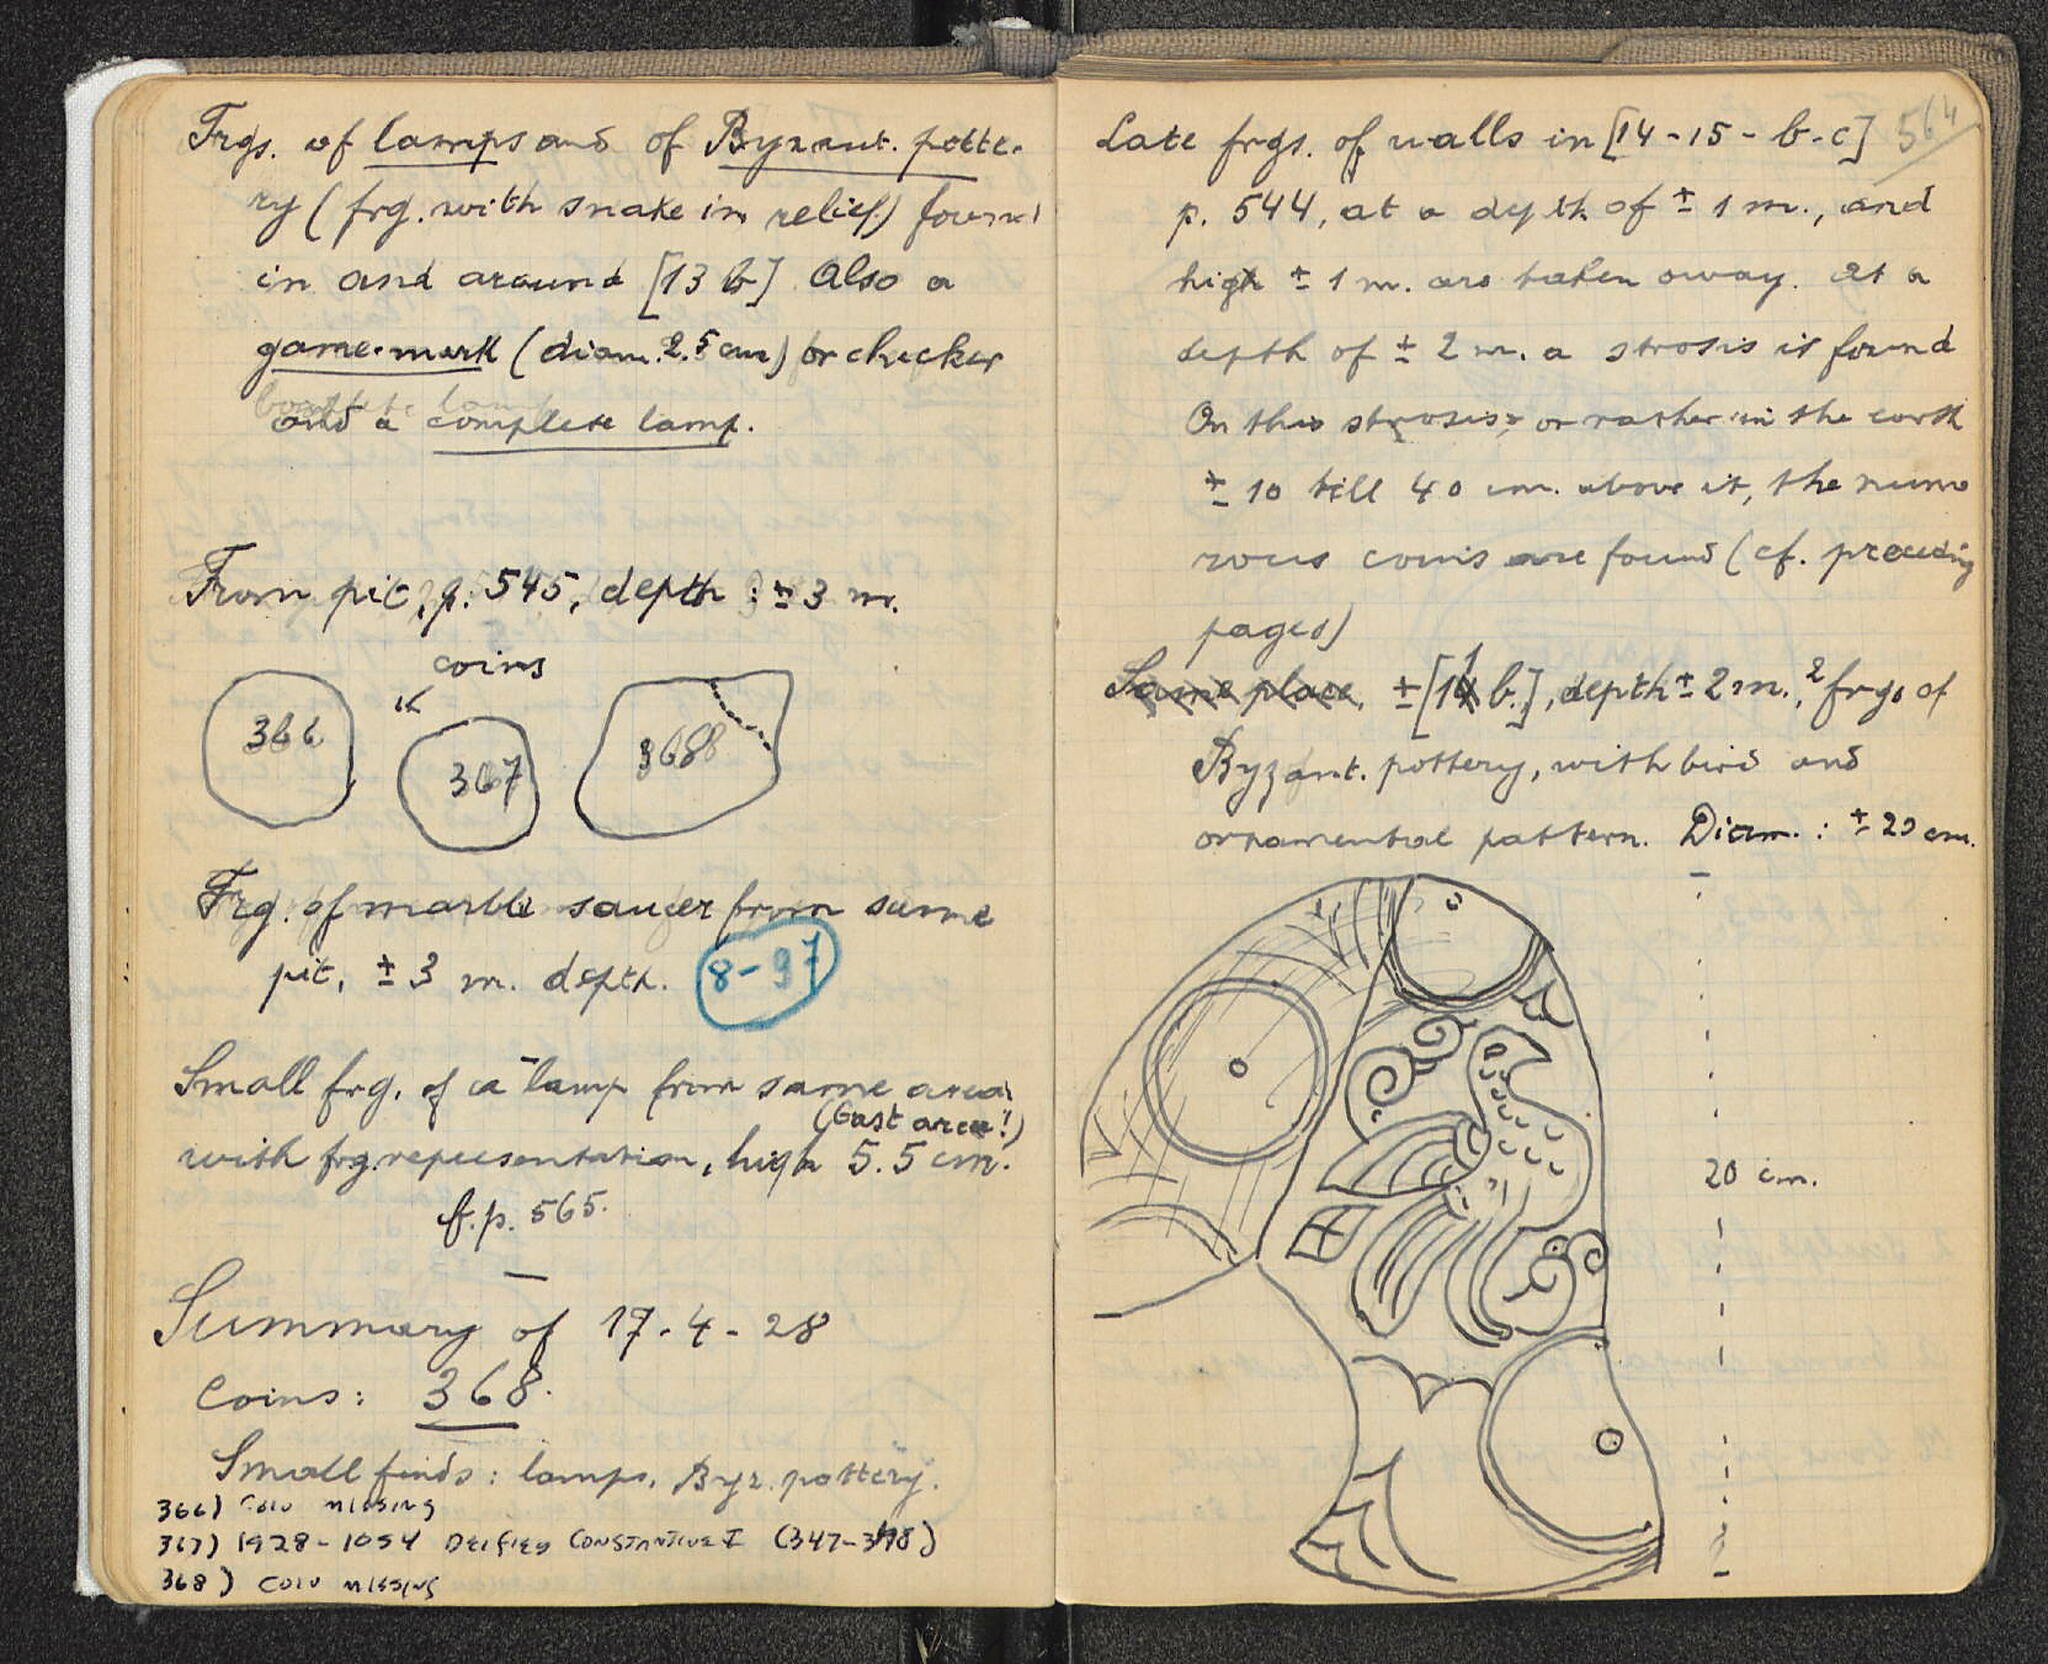 Frgs. of lamps and of Byzant. potte-
ry (frg. with snake in relief) found
in and around [13 b] Also a
game-mark (diam. 2.5 cm) or checker
and a complete lamp.
From pit, p. 545, depth : ± 3 m.
coins
366
367
368
Frg. of marble saucer from same
pit, ± 3 m. depth. 8-97
Small frg. of a lamp from same area
(East area!)
with frg. representation, high 5.5 cm.
cf. p. 565.
Summary of 17-4-28
Coins: 368.
Small finds: lamps, Byz. pottery.
366) COIN MISSING
367) 1928-1054 DEIFIED CONSTANTINE I (347-348)
368) COIN MISSING
564
Late frgs. of walls in [14-15-b-c]
p. 544, at a depth of ± 1 m., and
high ± 1 m. are taken away. At a
depth of ± 2 m. a strosis is found
On this strosis, or rather in the earth
± 10 till 40 cm. above it, the nume
rous coins are found (cf. preceding
pages)
Same place, ± [11 b.], depth ± 2 m., 2 frgs of
Byzant. pottery, with bird and
ornamental pattern. Diam. : ± 20 cm.
20 cm.